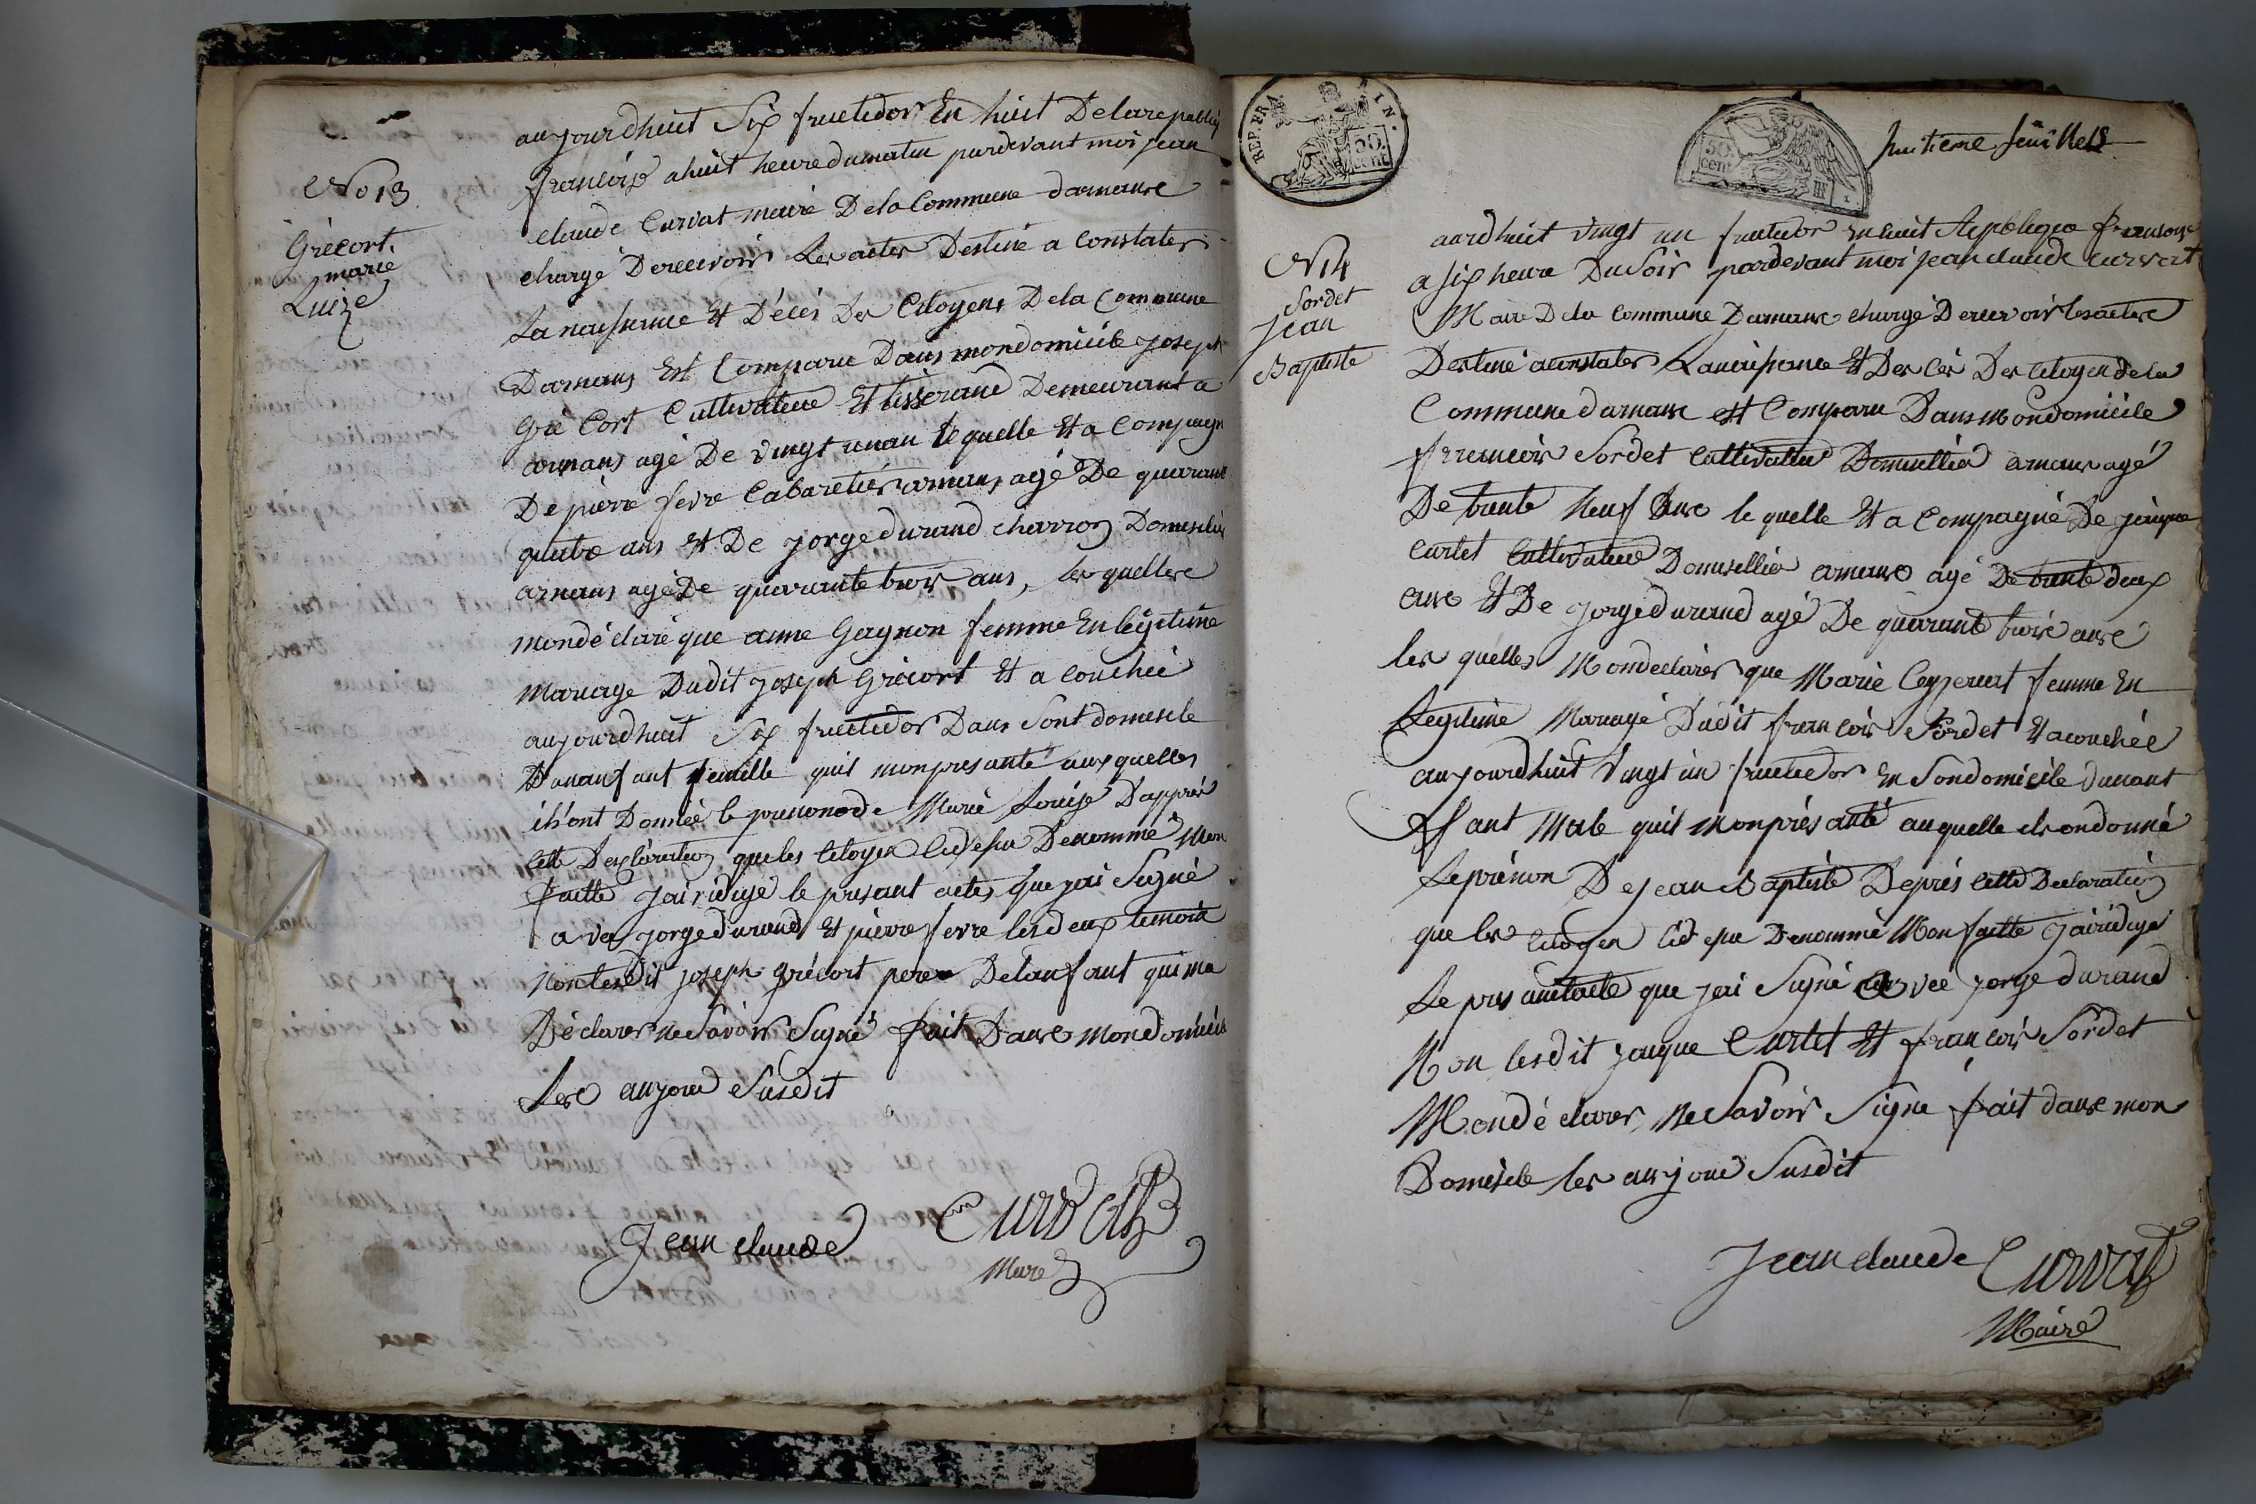 No 13
Grécort
marie
Luize
aujourdhuit Six fructidor En huit Delarepubliq
francoise ahuit heure dumatin pardevant moi jean
claude Curvat maire Dela Commune darnanse
chargé Derecevoir Les actes Destiné a Constater
La naissance Et Décés Des Citoyens Dela Commune
Darnans Est Comparue Dans mondomicile joseph
Gré Cort Cultivateur Et tisserand Demeurant a
arnans agé De vingt unan lequelle Et a Compagn
De piérre fevre Cabaretiér arnans agé De quarante
quatre ans Et De jorge durand charron Domicilié
arnans agéDe quarante trois ans, les quellese
mondéclaré que anne Gagnon femme En legitime
mariage Dudit joseph Grécort Et a Couchée
aujourdhuit Six fructidor Dans Sont domicile
Dunanfant femille quil monpresanté auxquelles
ils'ont Donnée le prenomde Marie Louise D'apprés
Cette Desclaration queles Citoyen Cidesu Denommé Mon
faitte Jairidige le presant actes que jai Signé
avec jorgedurand Et piérre fevre lesdeux temoin
nonlesdit joseph grécort pere Delanfant quima
Déclarer neSavoir Signé fait Danse mondomicile
Lese anjour Susdit
Jean claude Curvat
Maire
REP. FRA. 50. cent
50. cent
huitieme feuillets
No 14
Sordet
Jean
Baptiste
aurdhuit vingt un fructidor en huit Republique fransoise
a Six heure Du Soir pardevant moi jean claude Curvat
Maire Dela Commune Darnanse chargé Derecevoir lesactese
Destiné aconstater Lanaissance Et Des Cés Des Citoyen dela
Commune darnanse est Comparu Dans Mondomicile
francois Sordet Cultivateur Domicillié arnans agé
De trante Neuf anse lequelle Et a Compagné De jaique
Curtet Cultivateur Domicillié arnans agé De trante deux
anse Et De jorge durand agé De quarante troise anse
les quelles Mondeclarer que Marie femme En
Legitime Mariage Dudit francois Sordet Etacouchée
aujourdhuit vingt un fructidor En Sondomicile dunant
ffant Male quil Monprésanté auquelle ilsondonné
Leprénon De jean Baptiste Deprés Cette Declaration
que les Citoyen Cid esu Denommé Mon faitte Jairidigé
Le presantacte que jai Signé avec jorge durand
Non lesdit jaque Curtet Et francois Sordet
Mondé clarer Ne Savoir Signé fait danse mon
Domicile les anjour Susdit
Jean claude Curvat
Maire